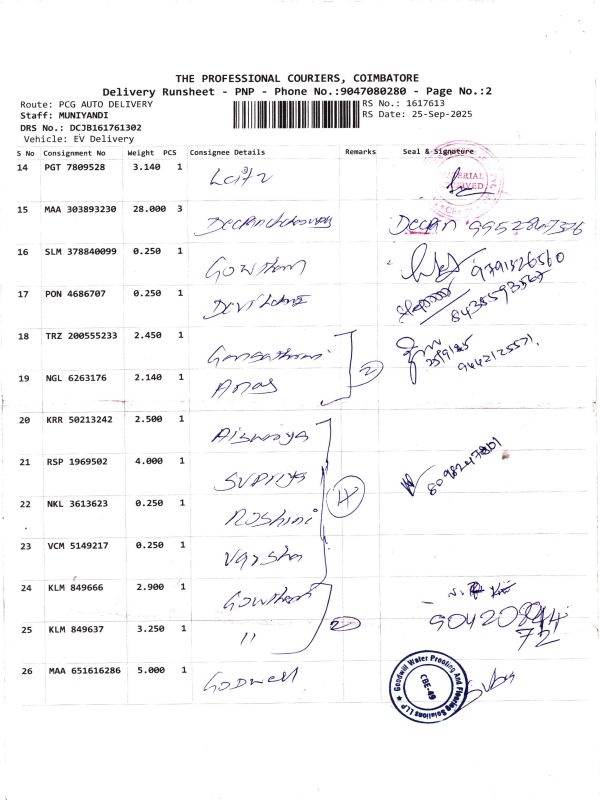 THE PROFESSIONAL COURIERS, COIMBATORE
Delivery Runsheet - PNP - Phone No.:9047080280 - Page No.:2
Route: PCG AUTO DELIVERY RS No.: 1617613
Staff: MUNIYANDI RS Date: 25-Sep-2025
DRS No.: DCJB161761302
Vehicle: EV Delivery
S No Consignment No Weight PCS Consignee Details Remarks Seal & Signature
14 PGT 7809528 3.140 1
15 MAA 303893230 28.000 3 Deccan
16 SLM 378840099 0.250 1 Gowtham 9791526560
17 PON 4686707 0.250 1 8435593567
18 TRZ 200555233 2.450 1 2
19 NGL 6263176 2.140 1 Anas 9442125571
20 KRR 50213242 2.500 1
21 RSP 1969502 4.000 1 Supriya 4
22 NKL 3613623 0.250 1 Roshini
23 VCM 5149217 0.250 1 Varsha
24 KLM 849666 2.900 1 Gowtham
25 KLM 849637 3.250 1 11 2
26 MAA 651616286 5.000 1 Godwell
Goodwill Water Proofing And Flooring Solutions LLP
CBE-49